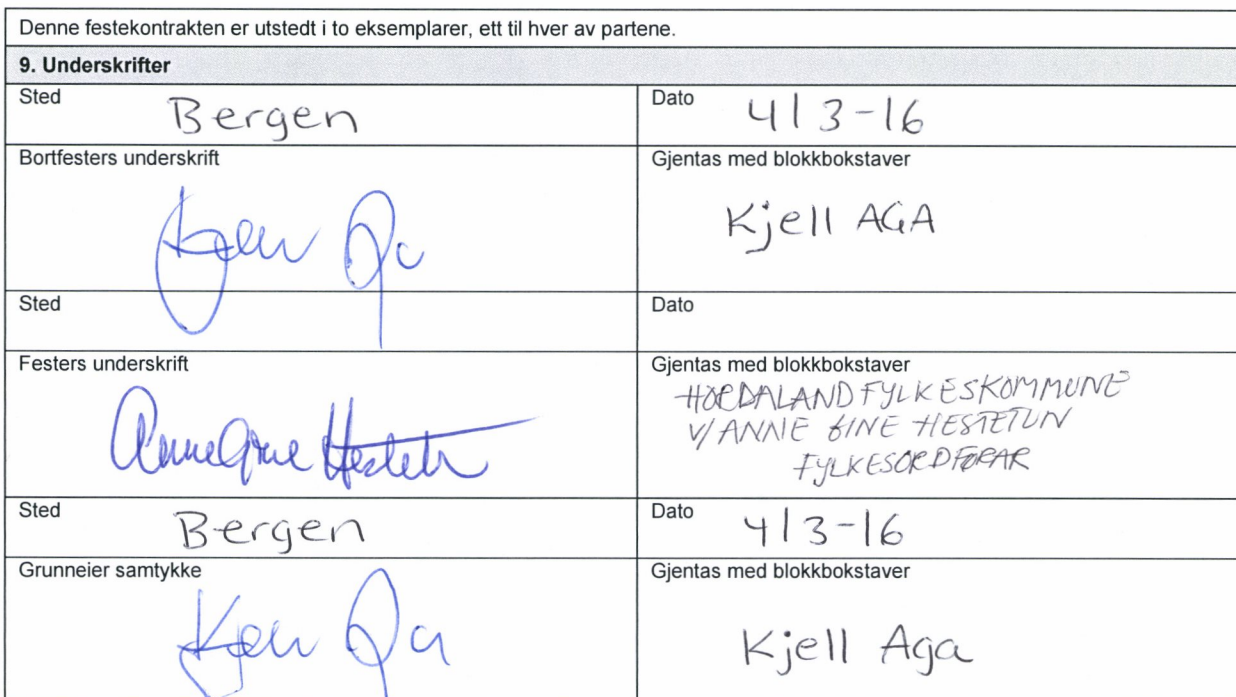 Denne festekontrakten er utstedt i to eksemplarer, ett til hver av partene.
9. Underskrifter
Sted Bergen
Dato 4/3-16
Bortfesters underskrift
Gjentas med blokkbokstaver
Kjell AGA
Sted
Dato
Festers underskrift
Gjentas med blokkbokstaver
HORDALAND FYLKESKOMMUNE
V/ANNE GINE HESTETUN
FYLKESORDFØRAR
Anne Gine Hestetun
Sted Bergen
Dato 4/3-16
Grunneier samtykke
Gjentas med blokkbokstaver
Kjell Aga